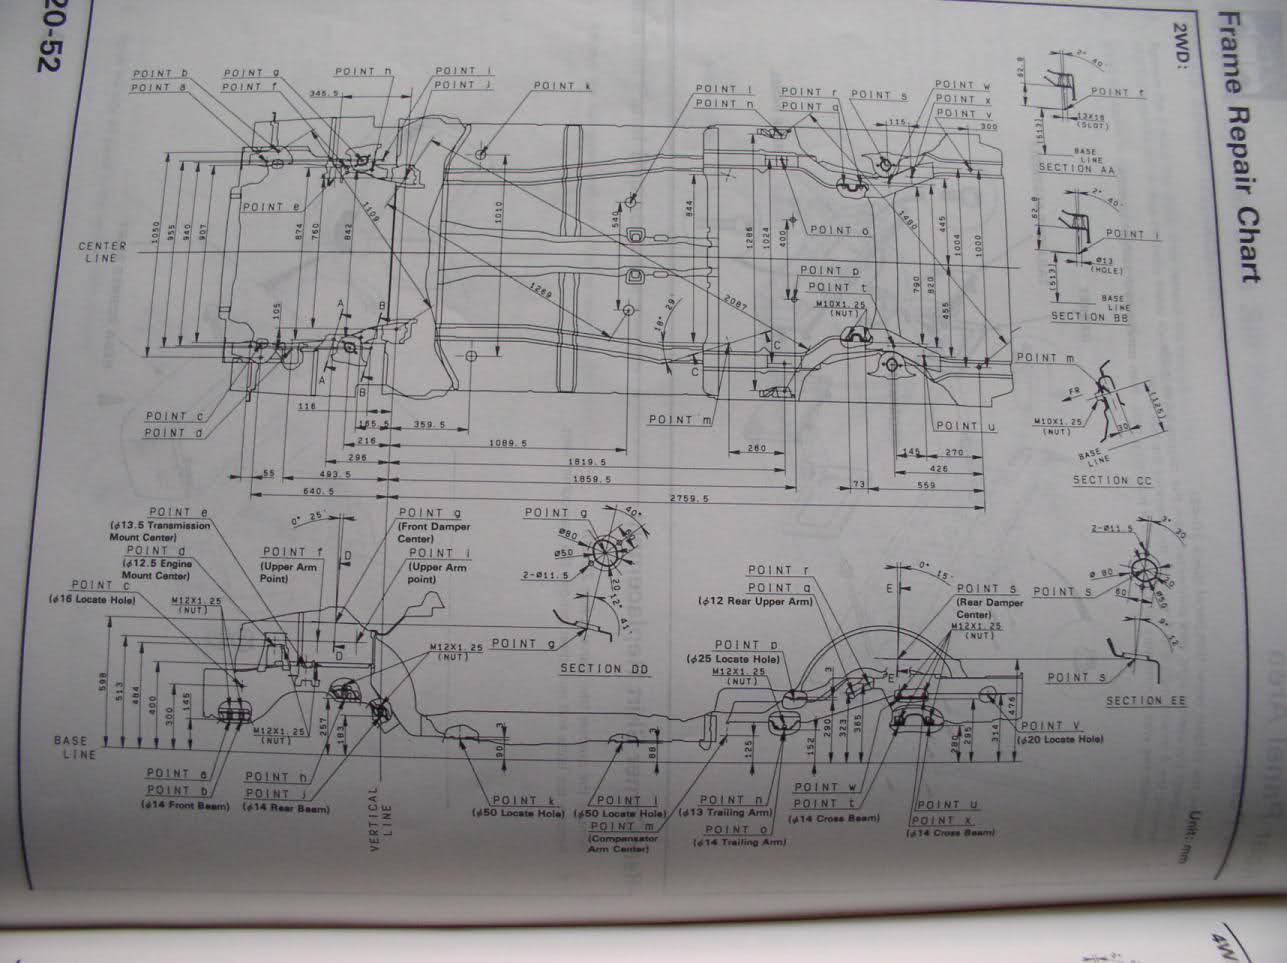 20-52
Frame Repair Chart
2WD:
Unit: mm
POINT b
POINT a
POINT g
POINT f
POINT h
POINT i
POINT j
POINT k
POINT l
POINT n
POINT r
POINT q
POINT s
POINT w
POINT x
POINT v
345.5
115
300
POINT e
POINT o
POINT p
POINT t
M10X1.25
(NUT)
CENTER
LINE
1050
955
940
907
874
760
842
1109
1010
540
844
1286
1024
400
1480
445
1004
1000
790
820
455
105
1269
2087
18° 29'
A
B
A
B
C
C
POINT c
POINT d
POINT m
POINT u
116
165.5
359.5
216
1089.5
260
145
270
296
1819.5
426
55
493.5
1859.5
73
559
640.5
2759.5
2°
40'
62.8
POINT f
13X16
(SLOT)
(513)
BASE
LINE
SECTION AA
2°
40'
62.8
POINT i
Ø13
(HOLE)
(513)
BASE
LINE
SECTION BB
POINT m
FR
M10X1.25
(NUT)
30
(125)
BASE
LINE
SECTION CC
POINT e
(φ13.5 Transmission
Mount Center)
POINT d
(φ12.5 Engine
Mount Center)
POINT c
(φ16 Locate Hole)
M12X1.25
(NUT)
0° 25'
POINT f
(Upper Arm
Point)
POINT g
(Front Damper
Center)
POINT i
(Upper Arm
point)
D
D
M12X1.25
(NUT)
POINT g
40°
Ø80
Ø50
60
2-Ø11.5
20
12°
41'
POINT g
SECTION DD
POINT r
POINT q
(φ12 Rear Upper Arm)
0° 15'
E
E
POINT s
(Rear Damper
Center)
M12X1.25
(NUT)
POINT p
(φ25 Locate Hole)
M12X1.25
(NUT)
2-Ø11.5
3°
30
Ø 80
POINT s
60
Ø50
9°
12'
POINT s
SECTION EE
598
513
484
400
300
145
BASE
LINE
M12X1.25
(NUT)
257
183
3
90
3
88
125
152
3
290
323
365
280
295
314
476
POINT v
(φ20 Locate Hole)
POINT a
POINT b
(φ14 Front Beam)
POINT h
POINT j
(φ14 Rear Beam)
VERTICAL
LINE
POINT k
(φ50 Locate Hole)
POINT l
(φ50 Locate Hole)
POINT m
(Compensator
Arm Center)
POINT n
(φ13 Trailing Arm)
POINT o
(φ14 Trailing Arm)
POINT w
POINT t
(φ14 Cross Beam)
POINT u
POINT x
(φ14 Cross Beam)
4W